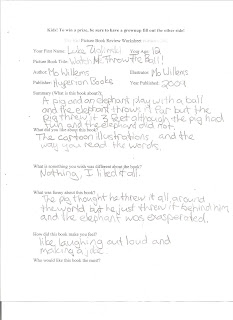 Kids! To win a prize, be sure to have a grown-up fill out the other side!
Picture Book Review Worksheet
Your First Name: Luke Your Age: 12
Picture Book Title: Watch Me Throw the Ball!
Author: Mo Willems Illustrator: Mo Willems
Publisher: Hyperion Books Year Published: 2009
Summary (What is this book about?):
A pig and an elephant play with a ball
and the elephant throws it far but the
pig threw it 3 feet although the pig had
fun and the elephant did not.
What did you like about this book?
The cartoon illustrations, and the
way you read the words.
What is something you wish was different about the book?
Nothing, I liked it all.
What was funny about this book?
The pig thought he threw it all around
the world but he just threw it behind him
and the elephant was exasperated.
How did this book make you feel?
like laughing out loud and
making a joke.
Who would like this book the most?